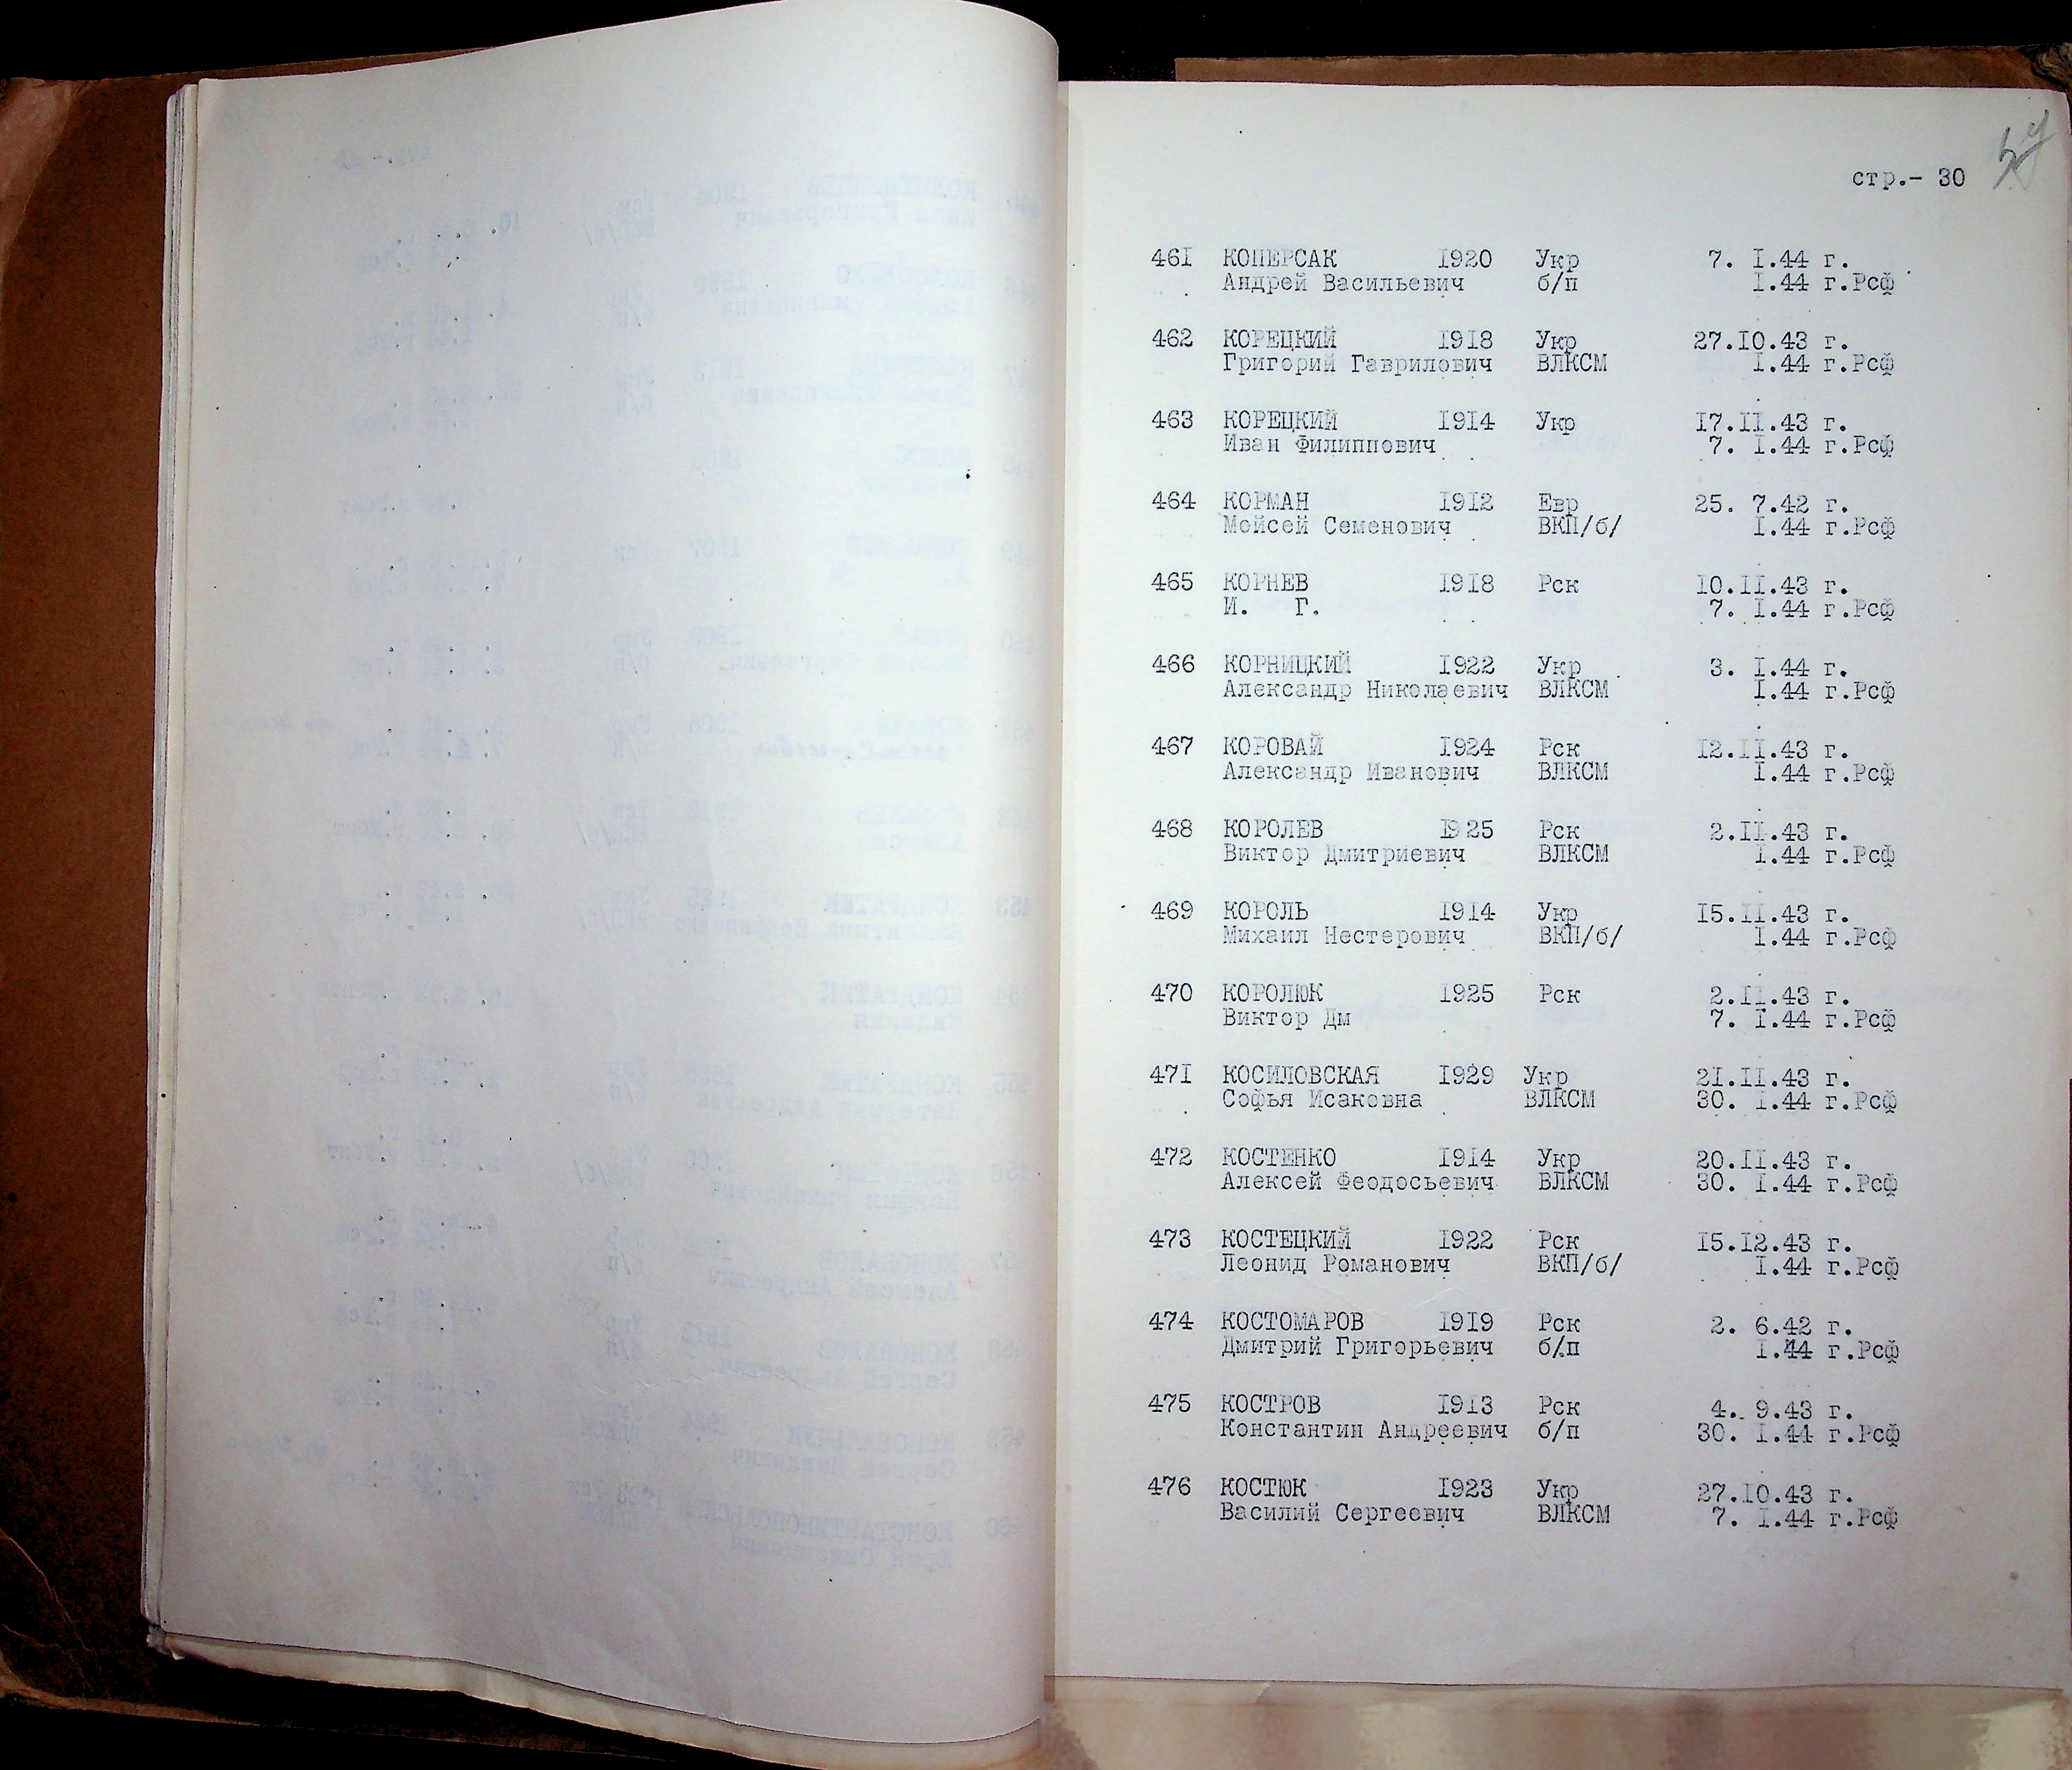 стр.- 30
461 КОПЕРСАК 1920 Укр 7. I.44 г.
Андрей Васильевич б/п I.44 г.Рсф
462 КОРЕЦКИЙ 1918 Укр 27.10.43 г.
Григорий Гаврилович ВЛКСМ I.44 г.Рсф
463 КОРЕЦКИЙ 1914 Укр 17.II.43 г.
Иван Филиппович 7. I.44 г.Рсф
464 КОРМАН 1912 Евр 25. 7.42 г.
Мойсей Семенович ВКП/б/ I.44 г.Рсф
465 КОРНЕВ 1918 Рск 10.II.43 г.
И. Г. 7. I.44 г.Рсф
466 КОРНИЦКИЙ 1922 Укр 3. I.44 г.
Александр Николаевич ВЛКСМ I.44 г.Рсф
467 КОРОВАЙ 1924 Рск 12.II.43 г.
Александр Иванович ВЛКСМ I.44 г.Рсф
468 КОРОЛЕВ 1925 Рск 2.II.43 г.
Виктор Дмитриевич ВЛКСМ I.44 г.Рсф
469 КОРОЛЬ 1914 Укр 15.II.43 г.
Михаил Нестерович ВКП/б/ I.44 г.Рсф
470 КОРОЛЮК 1925 Рск 2.II.43 г.
Виктор Дм 7. I.44 г.Рсф
471 КОСИЛОВСКАЯ 1929 Укр 21.II.43 г.
Софья Исаковна ВЛКСМ 30. I.44 г.Рсф
472 КОСТЕНКО 1914 Укр 20.II.43 г.
Алексей Феодосьевич ВЛКСМ 30. I.44 г.Рсф
473 КОСТЕЦКИЙ 1922 Рск 15.12.43 г.
Леонид Романович ВКП/б/ I.44 г.Рсф
474 КОСТОМАРОВ 1919 Рск 2. 6.42 г.
Дмитрий Григорьевич б/п I.44 г.Рсф
475 КОСТРОВ 1913 Рск 4. 9.43 г.
Константин Андреевич б/п 30. I.44 г.Рсф
476 КОСТЮК 1923 Укр 27.10.43 г.
Василий Сергеевич ВЛКСМ 7. I.44 г.Рсф